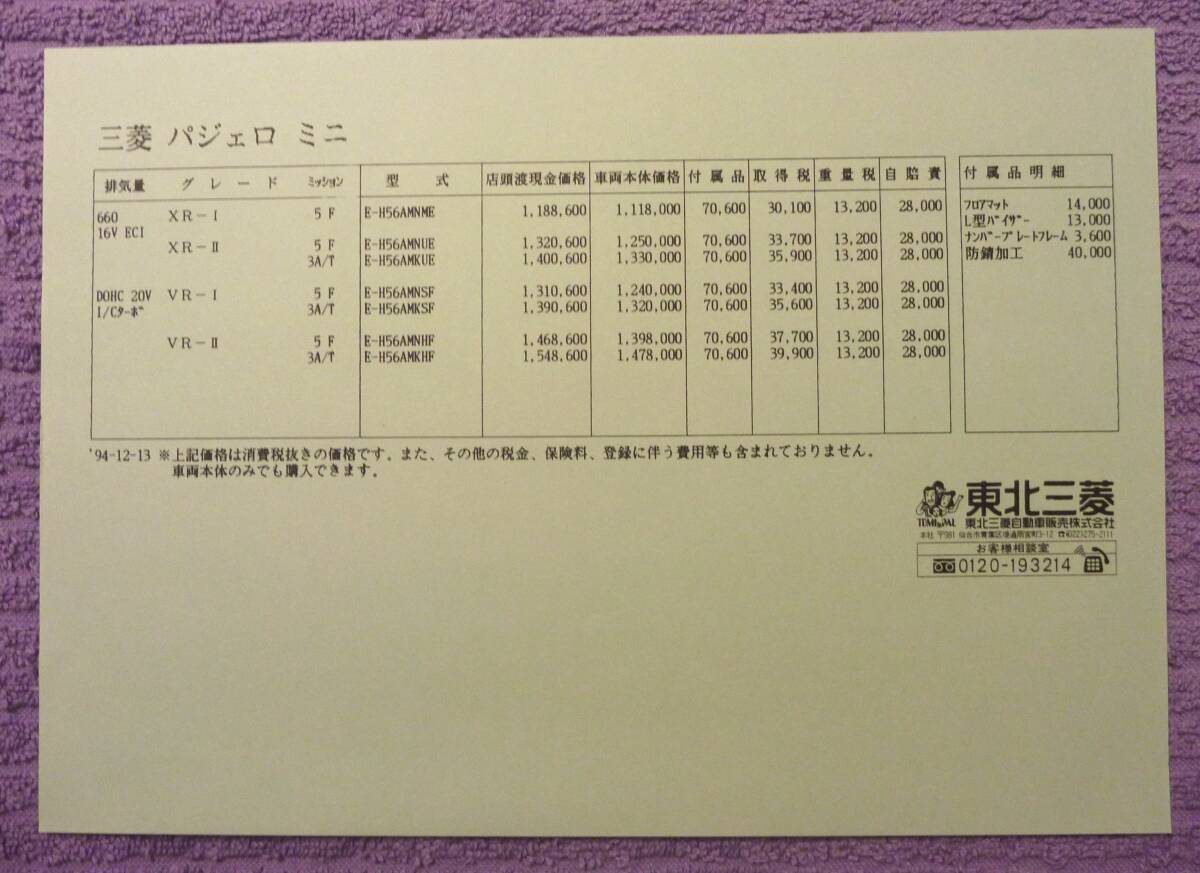 三菱 パジェロ ミニ
排気量 グレード ミッション 型式 店頭渡現金価格 車両本体価格 付属品 取得税 重量税 自賠責 付属品明細
660 XR-I 5F E-H56AMNME 1,188,600 1,118,000 70,600 30,100 13,200 28,000 フロアマット 14,000
16V ECI L型バイザー 13,000
XR-II 5F E-H56AMNUE 1,320,600 1,250,000 70,600 33,700 13,200 28,000 ナンバープレートフレーム 3,600
3A/T E-H56AMKUE 1,400,600 1,330,000 70,600 35,900 13,200 28,000 防錆加工 40,000
DOHC 20V VR-I 5F E-H56AMNSF 1,310,600 1,240,000 70,600 33,400 13,200 28,000
I/Cターボ 3A/T E-H56AMKSF 1,390,600 1,320,000 70,600 35,600 13,200 28,000
VR-II 5F E-H56AMNHF 1,468,600 1,398,000 70,600 37,700 13,200 28,000
3A/T E-H56AMKHF 1,548,600 1,478,000 70,600 39,900 13,200 28,000
'94-12-13 ※上記価格は消費税抜きの価格です。また、その他の税金、保険料、登録に伴う費用等も含まれておりません。
車両本体のみでも購入できます。
東北三菱
TOMI PAL 東北三菱自動車販売株式会社
本社 〒981 仙台市青葉区堤通雨宮町3-12 ☎(022)275-2111
お客様相談室
0120-193214